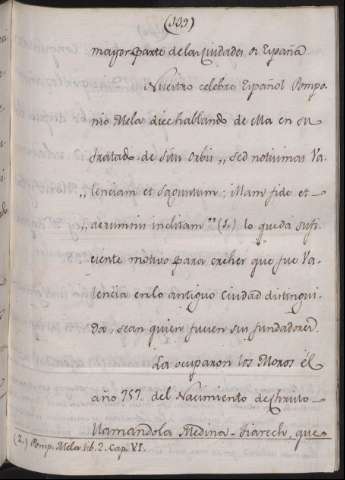 (109)
mayor parte de las Ciudades de España
Nuestro celebre Español Pompo-
nio Mela dice hablando de ella en su
tratado de situ orbis „ sed notisimas Va-
„ lenciam et Saguntum; illam fide et
„ aerumnis inclitam" (1.) lo queda sufi-
ciente motivo para creher que fue Va-
lencia en lo antiguo Ciudad distingui-
da, sean quien fuesen sus fundadores.
La ocuparon los Moros el
año 757. del Nacimiento de Christo
llamandola Medina-Tiarech, que
(1.) Pomp. Mela lib. 2. Cap. VI.